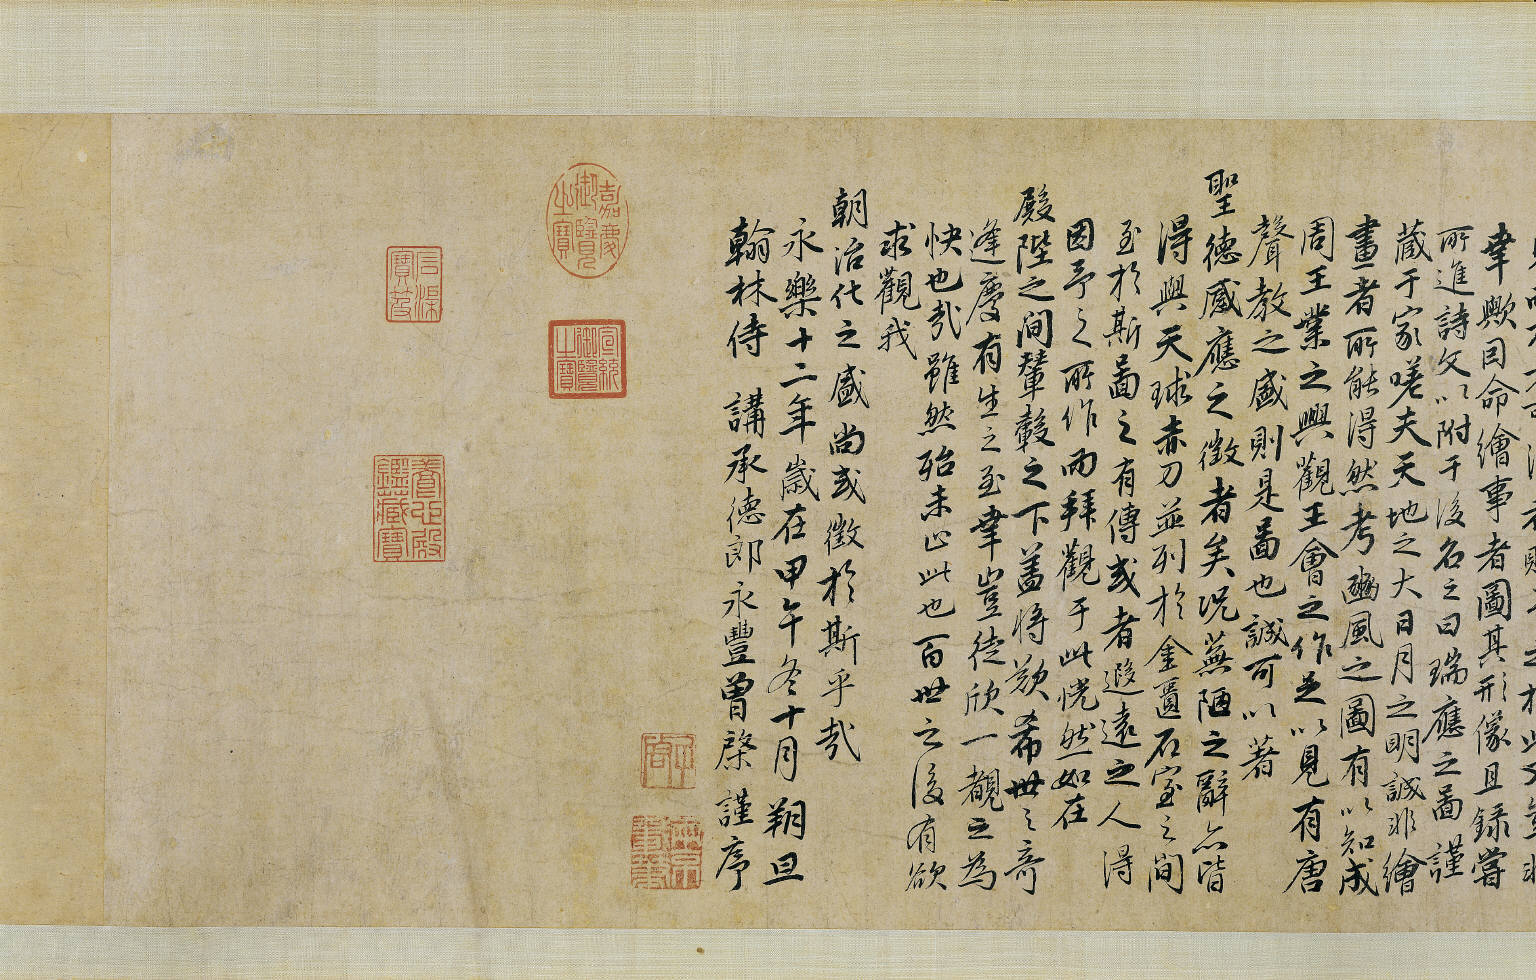 幸歟因命繪事者圖其形像且録嘗
所進詩文以附于後名之曰瑞應之圖謹
蔵于家嗟夫天地之大日月之明誠非繪
畫者所能得然考豳風之圖有以知成
周王業之興觀王會之作足以見有唐
聲教之盛則是圖也誠可以著
聖德感應之徵者矣況蕪陋之辭亦皆
得與天球赤刀並列於金匱石室之間
至於斯圖之有傳或者遐遠之人得
因予之所作而拜觀于此恍然如在
殿陛之間輦轂之下蓋將歎希世之奇
逢慶有生之至幸豈徒欣一覩之為
快也哉雖然殆未止此也百世之後有欲
求觀我
朝治化之盛尚或徵於斯乎哉
永樂十二年歲在甲午冬十月朔旦
翰林侍講承德郎永豐曾棨謹序
嘉慶御覽之寶
宣統御覽之寶
石渠寶笈
養心殿鑑藏寶